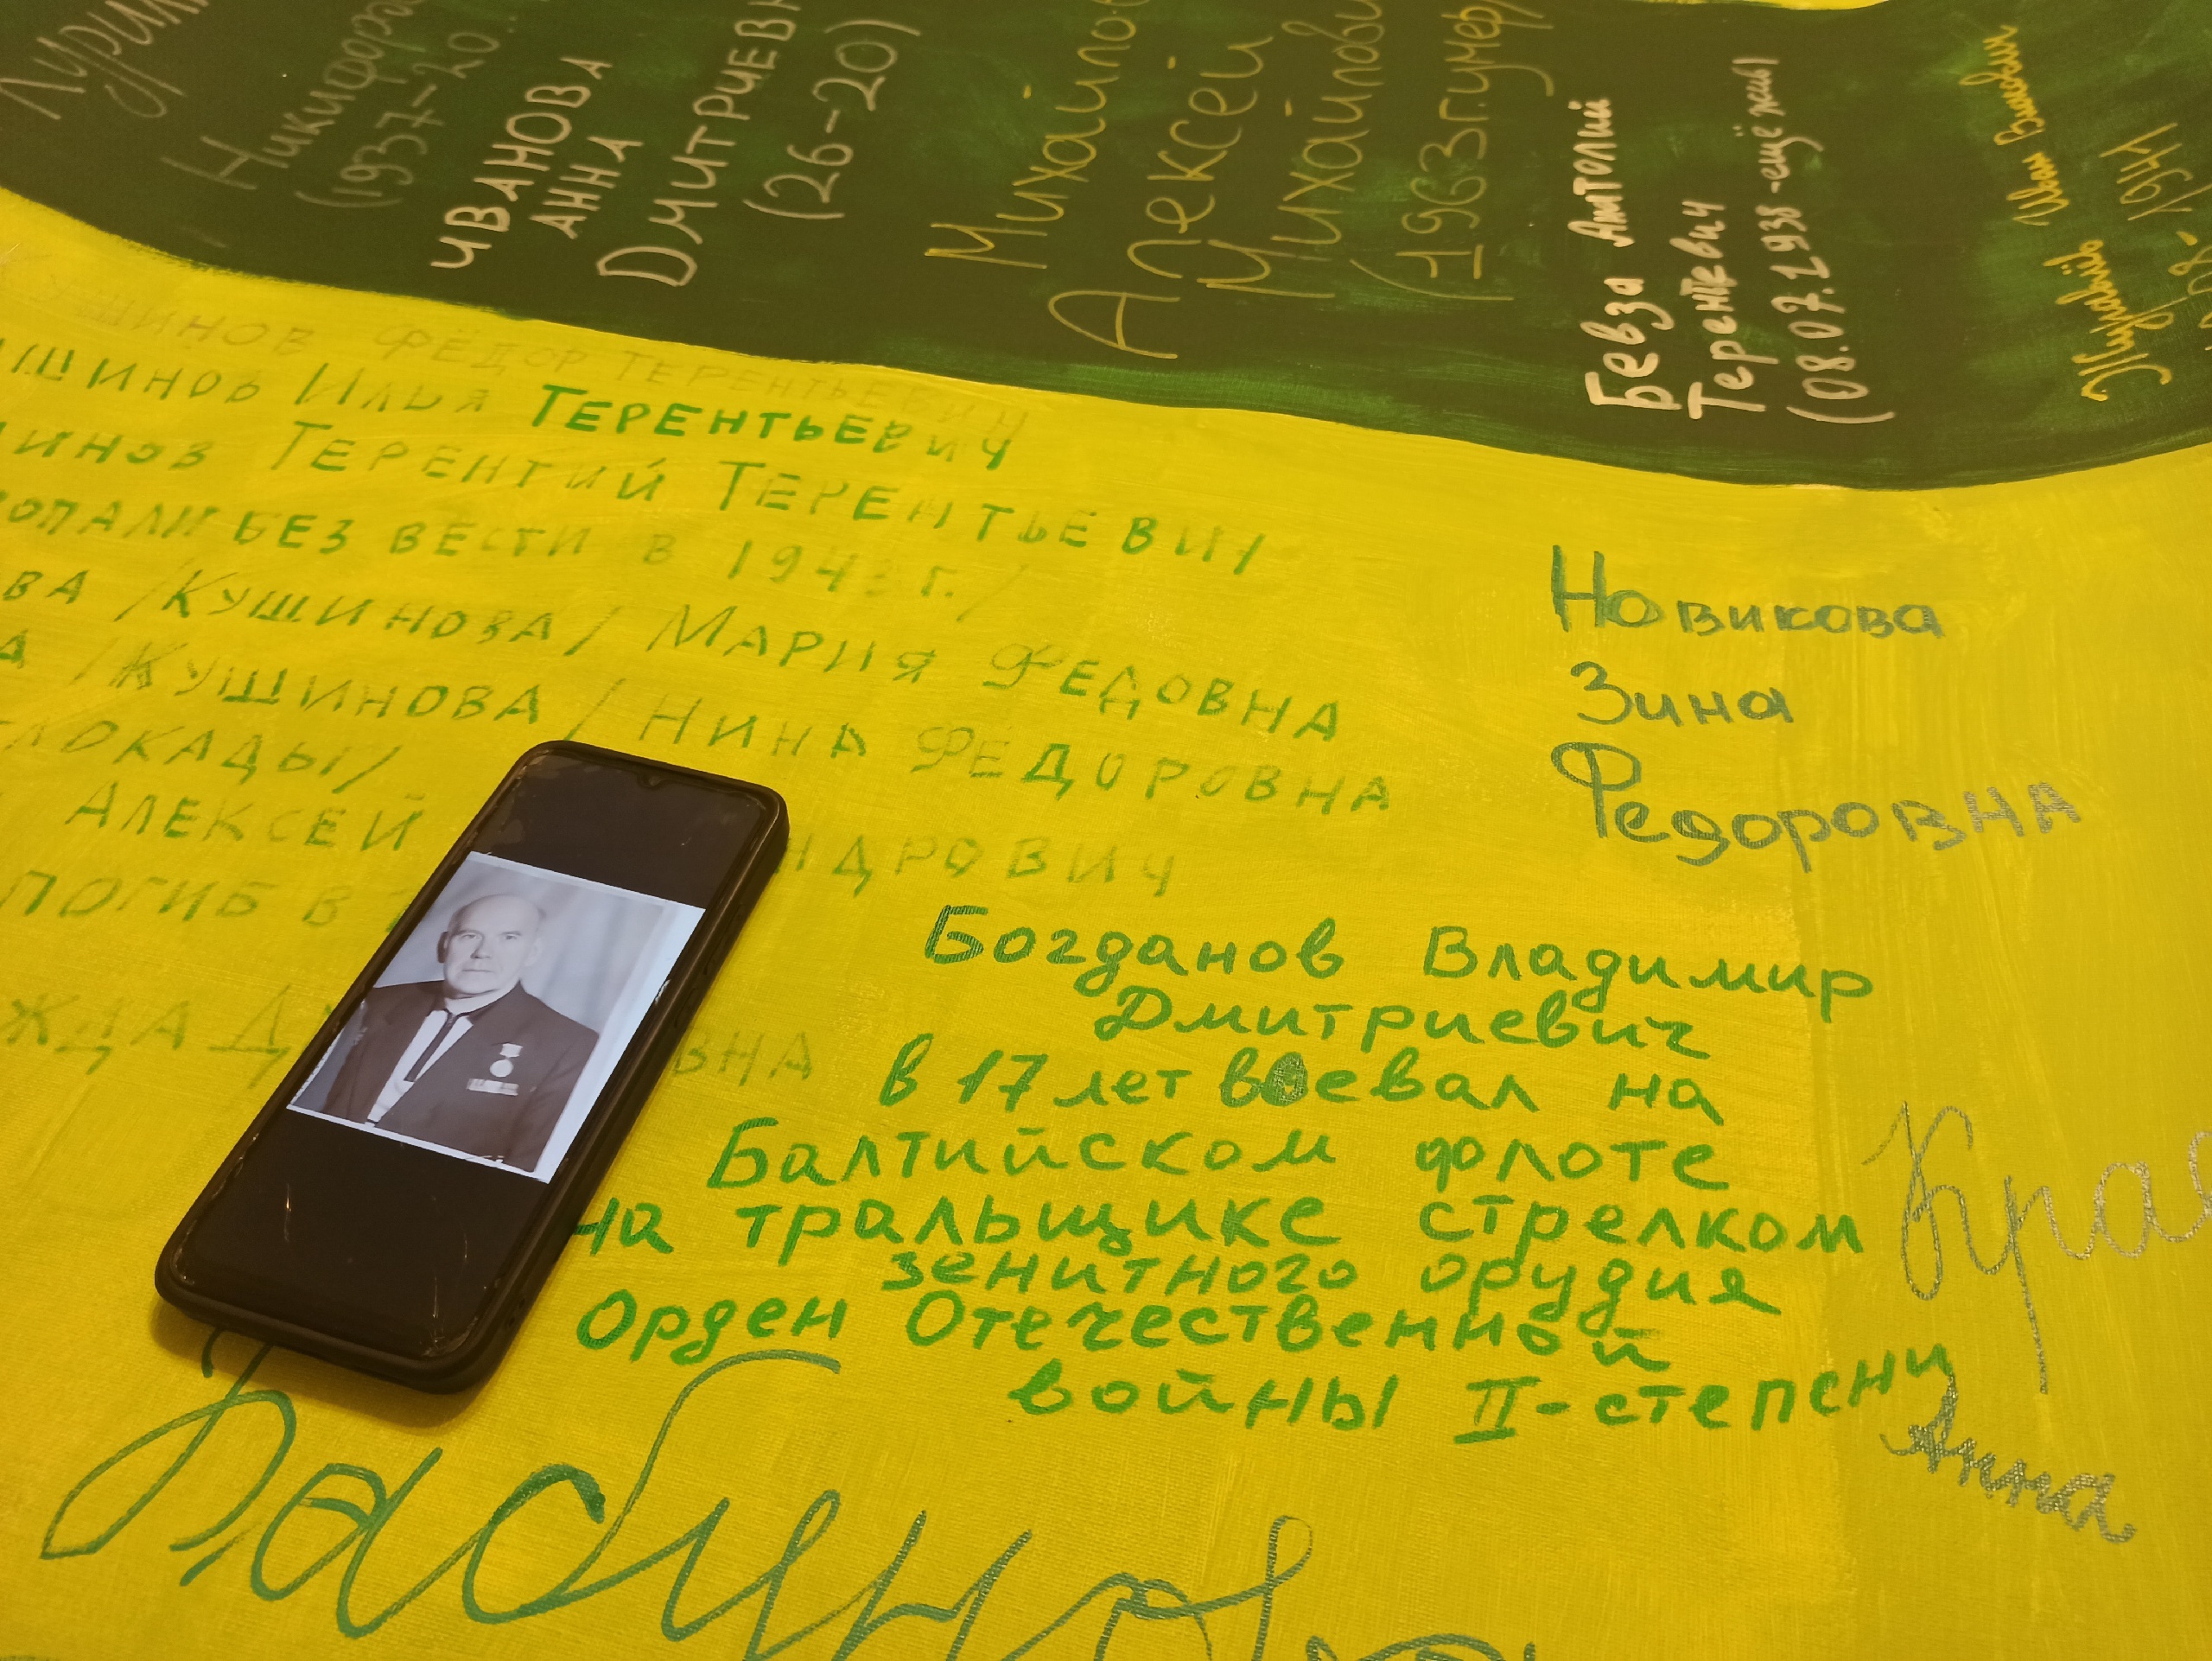 Никифор
(1937-20
ИВАНОВА
АННА
ДМИТРИЕВ
(26-20)
Михайло
Алексей
Михайлови
(1963г.умер
Бевза Анатолий
Терентевич
(08.07.1938-ещё жив)
Журавлёв Иван
1944
ШИНОВ ФЁДОР ТЕРЕНТЬЕВИЧ
ШИНОВ ИЛЬЯ ТЕРЕНТЬЕВИЧ
ИНОВ ТЕРЕНТИЙ ТЕРЕНТЬЕВИЧ
ОПАЛИ БЕЗ ВЕСТИ В 1943 г./
ВА /КУШИНОВА/ МАРИЯ ФЕДОВНА
А /КУШИНОВА/ НИНА ФЕДОРОВНА
ЛОКАДЫ/
АЛЕКСЕЙ НДРОВИЧ
ПОГИБ В
ЖДА Д ВНА
Новикова
Зина
Федоровна
Богданов Владимир
Дмитриевич
в 17 лет воевал на
Балтийском флоте
на тральщике стрелком
зенитного орудия
Орден Отечественной
войны II-степени
Крас
Анна
Бабушка